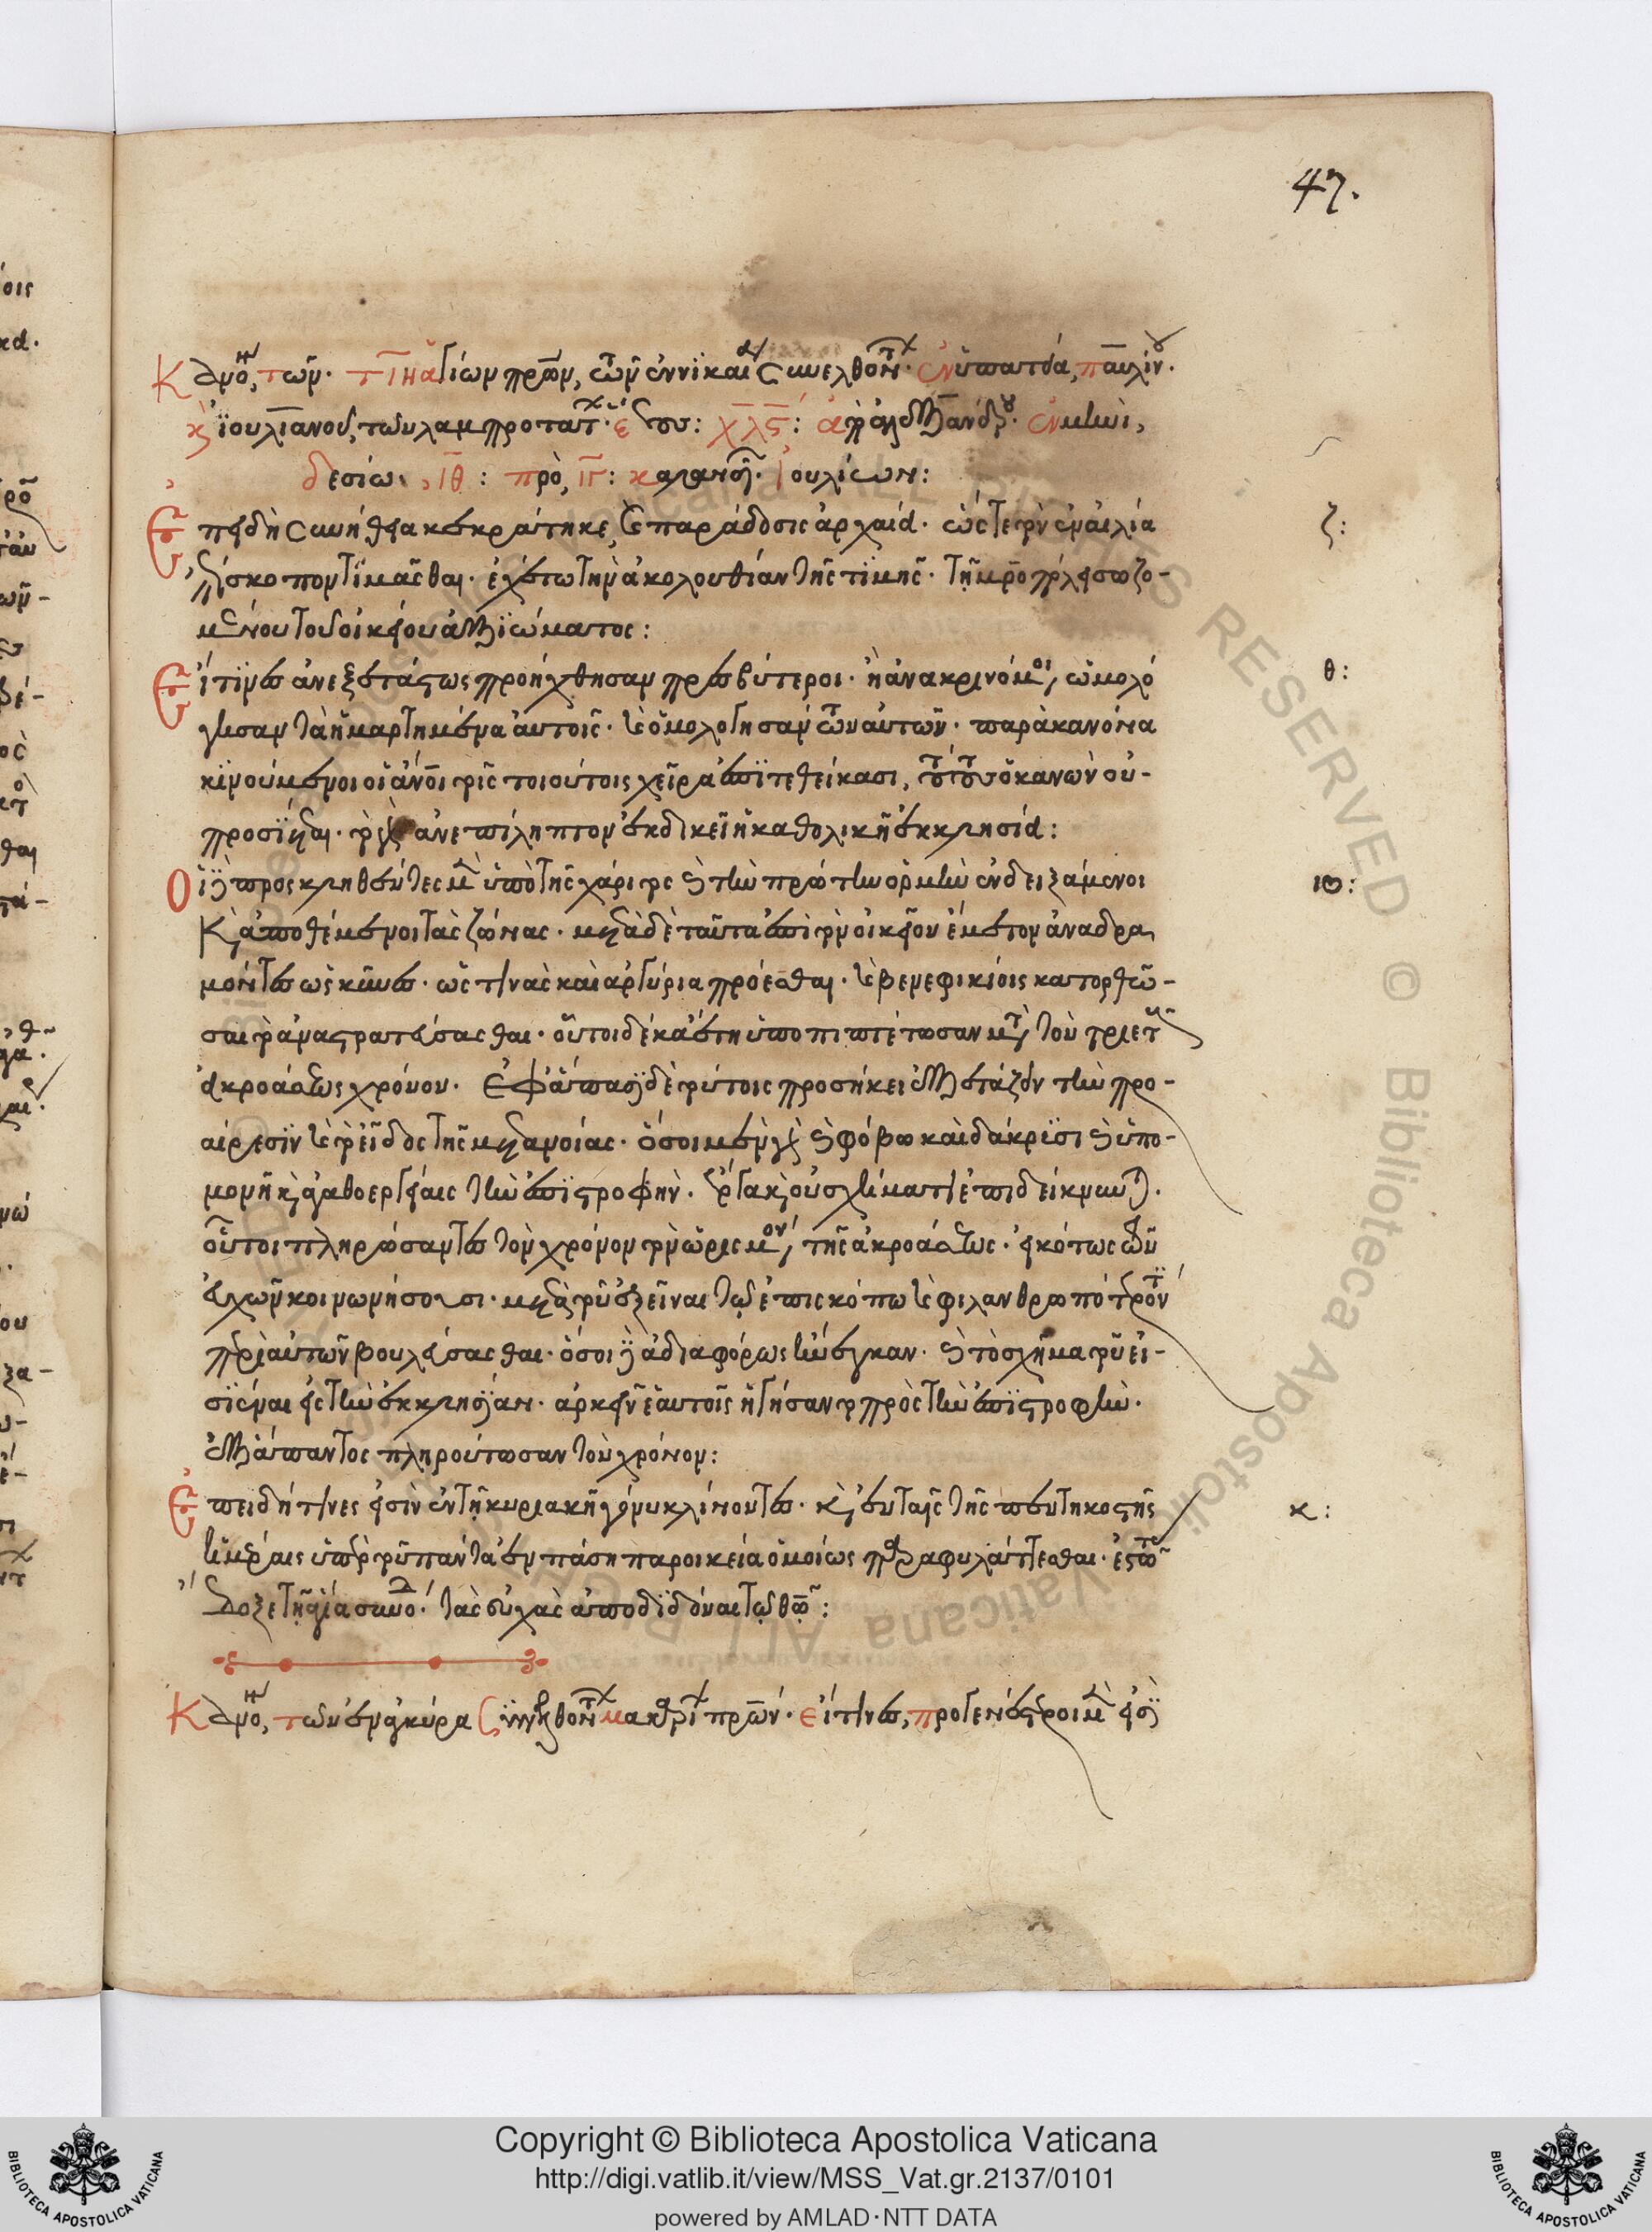 47.
Κανόν, τῶν. τιη ἁγίων πρων, τῶν ἐν νικαία συνελθόντ. ἐν ὑπατεία, παυλίν.
κ ἰουλιανοῦ, τῶν λαμπροτάτ. ἔτους: χλς: ἀπὸ ἀλεξάνδρ. ἐν μηνὶ,
δεσίω ιθ: πρὸ, ιγ: καλανδ. ἰουλίων:
Ἐπειδὴ συνήθεια κεκράτηκε, καὶ παράδοσις ἀρχαία. ὥστε τὸν ἐν αἰλία ζ:
ἐπίσκοπον τιμᾶσθαι. ἐχέτω τὴν ἀκολουθίαν τῆς τιμῆς. τῆ μρο πόλει σωζο-
μένου τοῦ οἰκείου ἀξιώματος:
Εἴ τινες ἀνεξετάστως προήχθησαν πρεσβύτεροι. ἢ ἀνακρινόμενοι, ὡμολό θ:
γησαν τὰ ἡμαρτημένα αὐτοῖς. καὶ ὁμολογησάντων αὐτῶν. παρὰ κανόνα
κινούμενοι οἱ ἀνοι τοῖς τοιούτοις χεῖρα ἐπιτεθείκασι, τούτους ὁ κανὼν οὐ-
προσίεται. τὸ γὰρ ἀνεπίληπτον ἐκδικεῖ ἡ καθολικὴ ἐκκλησία:
Οἱ δὲ προσκληθέντες μὲν ὑπὸ τῆς χάριτος καὶ τὴν πρώτην ὁρμὴν ἐνδειξάμενοι ιβ:
Κ ἀποθέμενοι τὰς ζώνας. μετὰ δὲ ταῦτα ἐπὶ τὸν οἰκεῖον ἔμετον ἀναδρα
μόντες ὡς κύνες. ὥς τινὰς καὶ ἀργύρια πρόεσθαι. καὶ βενεφικίοις κατορθῶ-
σαι τὸ ἀναστρατεύσασθαι. οὗτοι δέκα ἔτη ὑποπιπτέτωσαν μετὰ τὸν τριετ
ἀκροάσεως χρόνον. Ἐφ' ἅπασι δὲ τούτοις προσήκει ἐξετάζειν τὴν προ-
αίρεσιν καὶ τὸ εἶδος τῆς μετανοίας. ὅσοι μὲν γὰρ καὶ φόβω καὶ δάκρυσι καὶ ὑπο-
μονῆ κ ἀγαθοεργίαις τὴν ἐπιστροφήν. ἔργω κ οὐ σχήματι ἐπιδείκνυνται.
οὗτοι πληρώσαντες τὸν χρόνον τὸν ὡρισμένον, τῆς ἀκροάσεως. εἰκότως τῶν
εὐχῶν κοινωνήσουσι. μετὰ τοῦ ἐξεῖναι τῶ ἐπισκόπω καὶ φιλανθρωπότερόν
περὶ αὐτῶν βουλεύσασθαι. ὅσοι δὲ ἀδιαφόρως ἤνεγκαν. καὶ τὸ σχῆμα τοῦ εἰ-
σιέναι εἰς τὴν ἐκκλησίαν. ἀρκεῖν ἑαυτοῖς ἡγήσαντο πρὸς τὴν ἐπιστροφὴν.
ἐξ ἅπαντος πληρούτωσαν τὸν χρόνον:
Ἐπειδή τινες εἰσὶν ἐν τῆ κυριακῆ γόνυ κλίνοντες. κ ἐν ταῖς τῆς πεντηκοστῆς κ:
ἡμέραις ὑπὲρ τοῦ πάντα ἐν πάση παροικεία ὁμοίως παραφυλάττεσθαι. ἑστῶτ
ἔδοξε τῆ ἁγία συνόδ. τὰς εὐχὰς ἀποδιδόναι τῶ θω:
Κανόν, τῶν ἐν ἀγκύρα συνελθόντ μακαρί πρων. εἴ τινες, προγενέστεροι μὲν εἰσὶ
Copyright © Biblioteca Apostolica Vaticana
http://digi.vatlib.it/view/MSS_Vat.gr.2137/0101
powered by AMLAD·NTT DATA